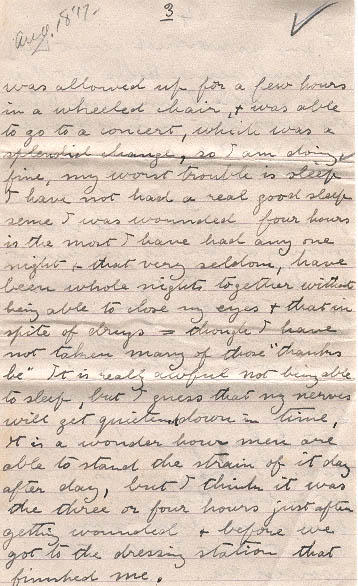 Aug. 18 '17.
3
was allowed up for a few hours
in a wheeled chair, + was able
to go to a concert, which was a
splendid change, so I am doing
fine, my worst trouble is sleep
I have not had a real good sleep
sense I was wounded four hours
is the most I have had any one
night + that very seldom, have
been whole nights together without
being able to close my eyes + that in
spite of drugs = though I have
not taken many of those "thanks
be" It is really awful not being able
to sleep, but I guess that my nerves
will get quieten down in time,
It is a wonder how men are
able to stand the strain of it day
after day, but I think it was
the three or four hours just after
getting wounded + before we
got to the dressing station that
finished me.